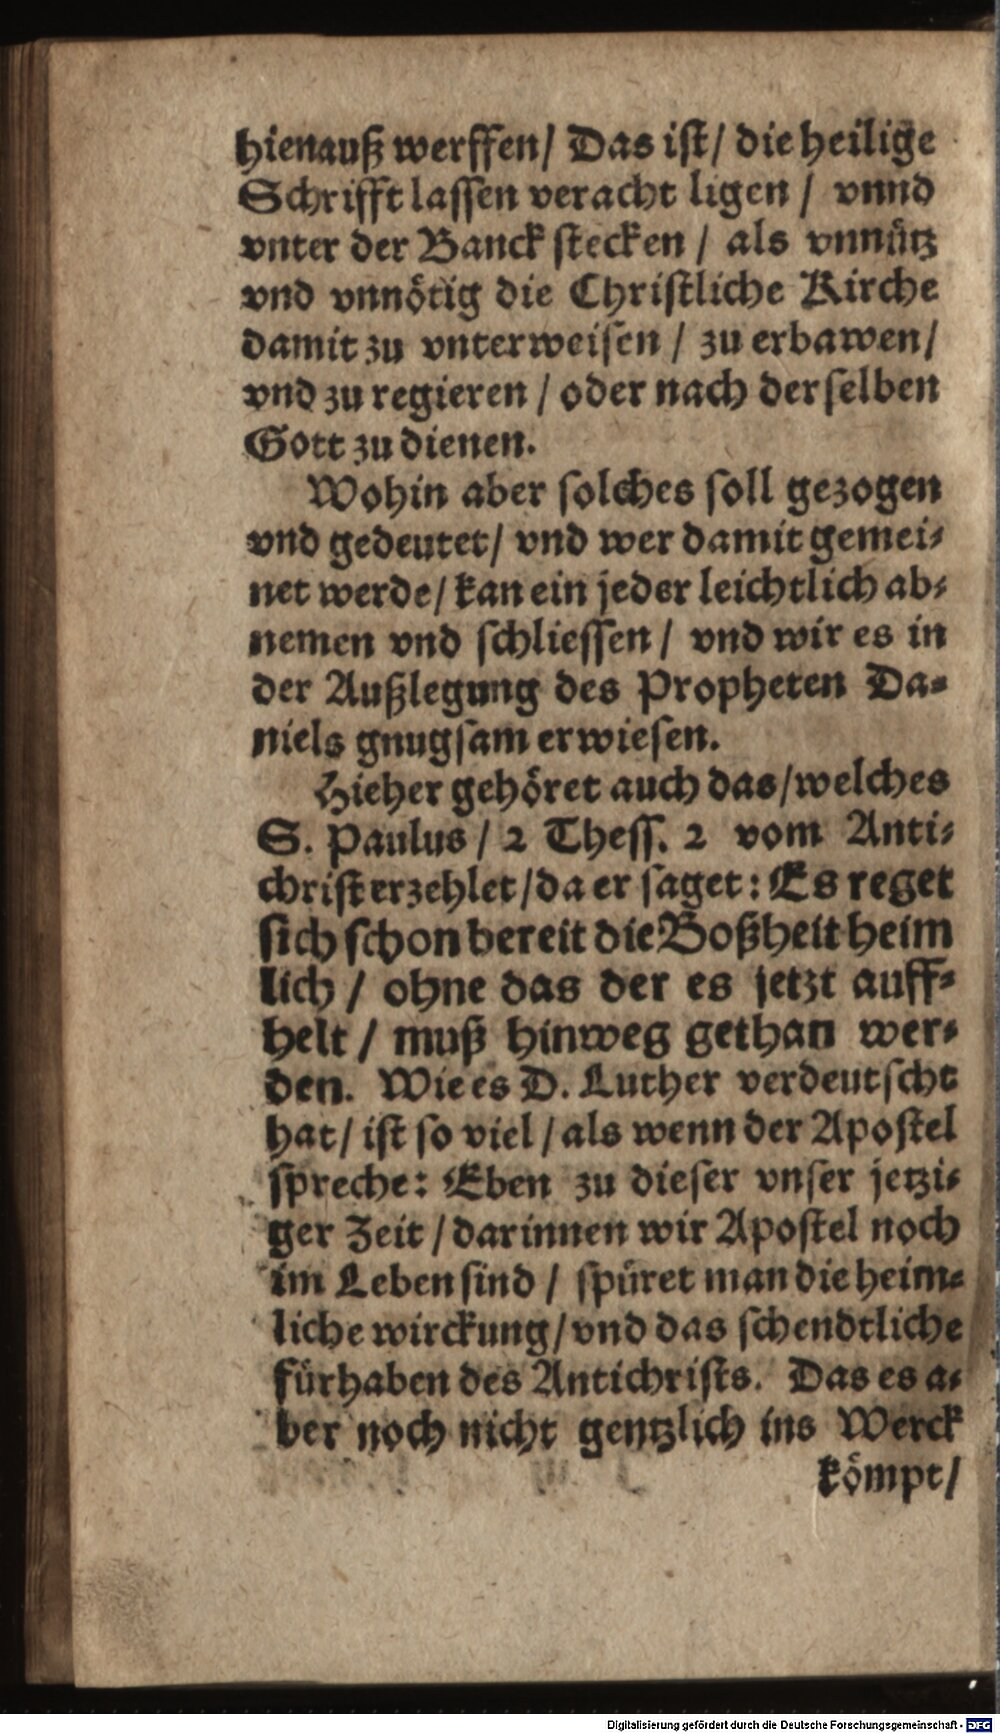 hienauß werffen/ Das ist/ die heilige
Schrifft lassen veracht ligen / vnnd
vnter der Banck stecken / als vnnütz
vnd vnnötig die Christliche Kirche
damit zu vnterweisen / zu erbawen/
vnd zu regieren / oder nach derselben
Gott zu dienen.
Wohin aber solches soll gezogen
vnd gedeutet/ vnd wer damit gemei-
net werde/ kan ein jeder leichtlich ab-
nemen vnd schliessen / vnd wir es in
der Außlegung des Propheten Da-
niels gnugsam erwiesen.
Hieher gehöret auch das/welches
S. Paulus / 2 Thess. 2 vom Anti-
christ erzehlet/da er saget: Es reget
sich schon bereit die Boßheit heim
lich / ohne das der es jetzt auff-
helt / muß hinweg gethan wer-
den. Wie es D. Luther verdeutscht
hat/ ist so viel/ als wenn der Apostel
spreche: Eben zu dieser vnser jetzi-
ger Zeit/ darinnen wir Apostel noch
im Leben sind / spüret man die heim-
liche wirckung/vnd das schendtliche
fürhaben des Antichrists. Das es a-
ber noch nicht gentzlich ins Werck
kömpt/
Digitalisierung gefördert durch die Deutsche Forschungsgemeinschaft - DFG